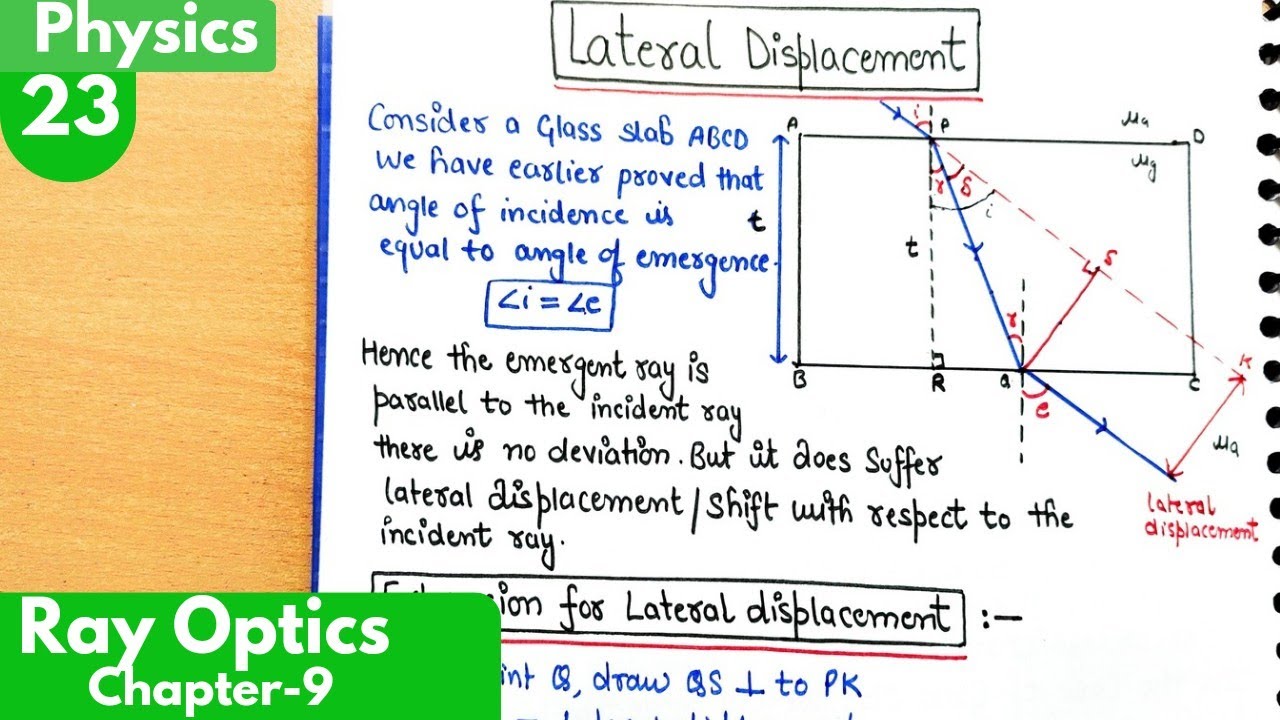 Physics
23
Lateral Displacement
Consider a Glass slab ABCD
We have earlier proved that
angle of incidence is
equal to angle of emergence.
∠i = ∠e
Hence the emergent ray is
parallel to the incident ray
there is no deviation. But it does suffer
lateral displacement / Shift with respect to the
incident ray.
A
i
P
μa
D
μg
r
δ
i
t
t
S
r
B
R
Q
C
K
e
μa
lateral
displacement
for Lateral displacement :-
Q, draw QS ⊥ to PK
Ray Optics
Chapter-9